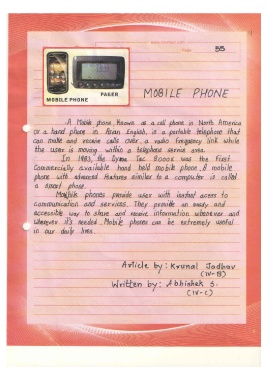 55
MOBILE PHONE
PAGER
MOBILE PHONE
A Mobile phone known as a cell phone in North America
or a hand phone in Asian English, is a portable telephone that
can make and receive calls over a radio frequency link while
the user is moving within a telephone service area.
In 1983, the Dyna Tac 8000x was the first
Commercially available hand held mobile phone. A mobile
phone with advanced features similar to a computer is called
a smart phone
Mobile phones provide user with instant access to
communication and services. They provide an ready and
accessible way to share and receive information whenever and
wherever it's needed. Mobile phones can be extremely useful
in our daily lives.
Article by: Krunal Jadhav
(IV-B)
Written by: Abhishek S.
(IV-C)